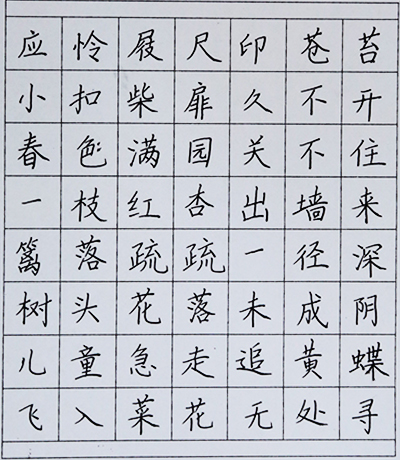 应怜屐尺印苍苔
小扣柴扉久不开
春色满园关不住
一枝红杏出墙来
篱落疏疏一径深
树头花落未成阴
儿童急走追黄蝶
飞入菜花无处寻